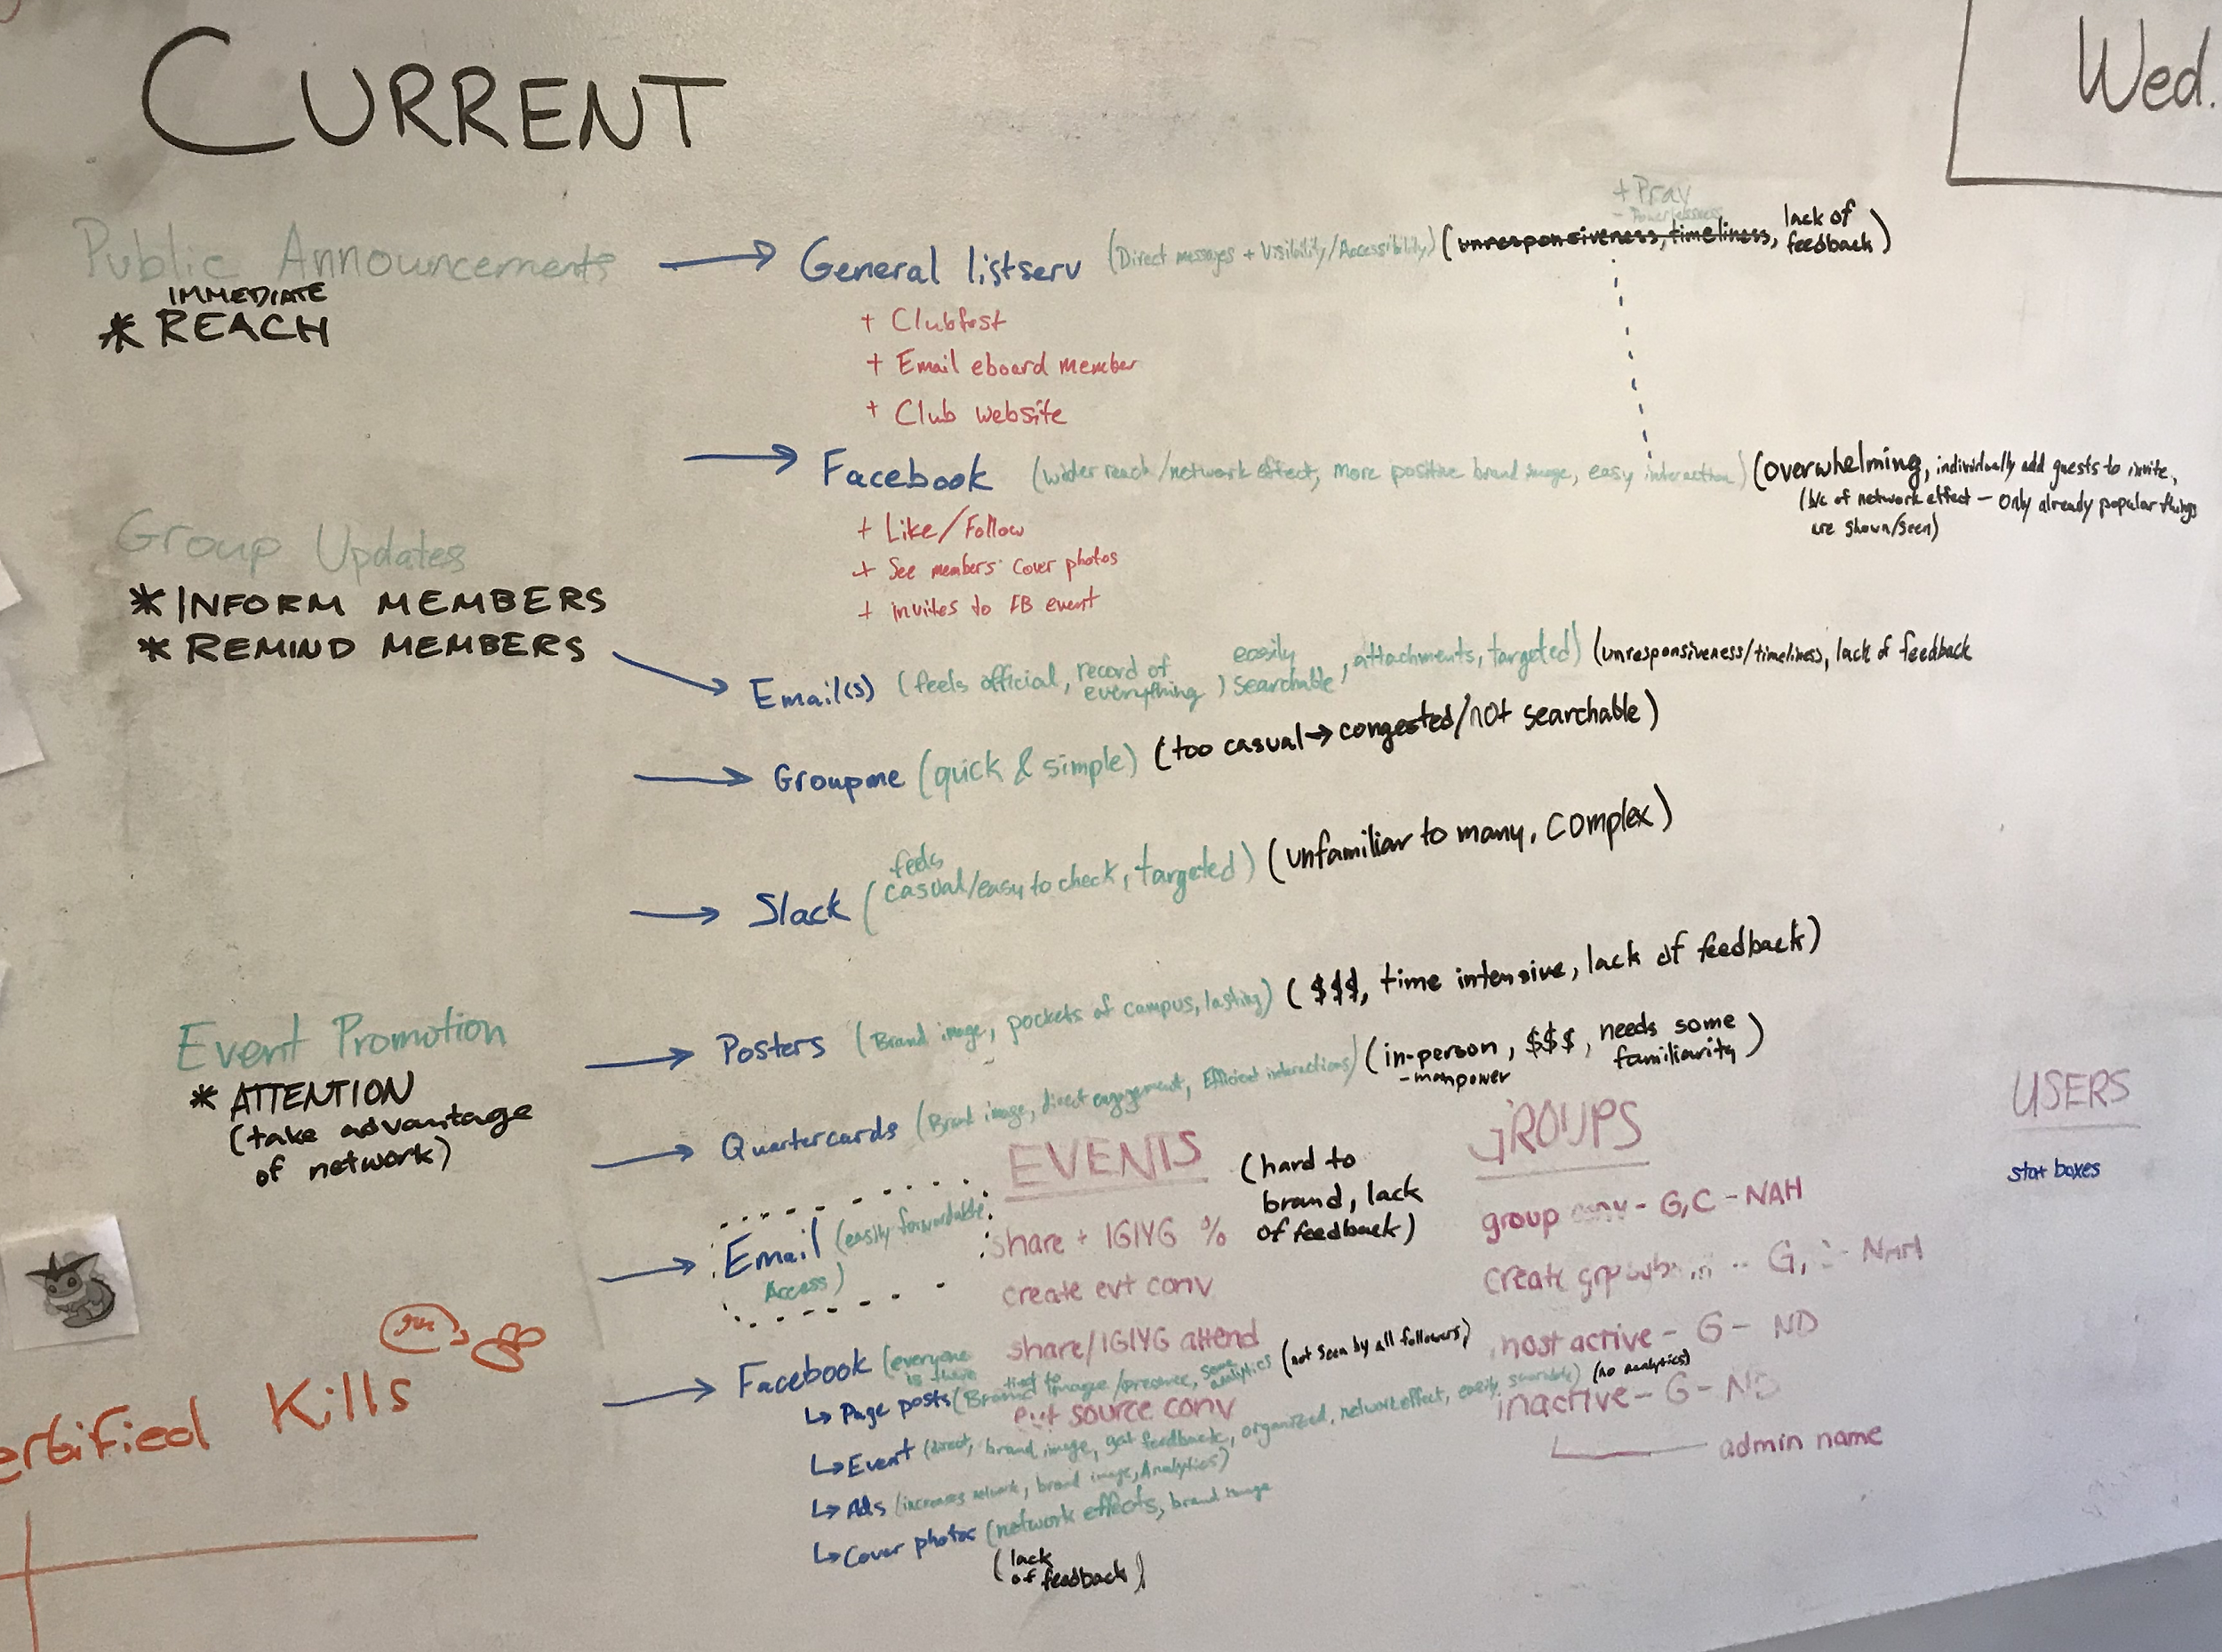 CURRENT
Wed.
Public Announcements
IMMEDIATE
* REACH
+ Pray
- Powerlessness
General listserv (Direct messages + Visibility/Accessibility) (unresponsiveness, timeliness, lack of feedback)
+ Clubfest
+ Email eboard member
+ Club website
Facebook (wider reach/network effect, more positive brand image, easy interaction) (overwhelming, individually add guests to invite,
(b/c of network effect - only already popular things
are shown/seen)
+ Like/Follow
+ See members' cover photos
+ invites to FB event
Group Updates
* INFORM MEMBERS
* REMIND MEMBERS
Email(s) (feels official, record of everything, easily searchable, attachments, targeted) (unresponsiveness/timeliness, lack of feedback
Groupme (quick & simple) (too casual → congested/not searchable)
Slack (feels casual/easy to check, targeted) (unfamiliar to many, complex)
Event Promotion
* ATTENTION
(take advantage
of network)
Posters (Brand image, pockets of campus, lasting) ($$$, time intensive, lack of feedback)
Quartercards (Brand image, direct engagement, Efficient interactions) (in-person, $$$, needs some familiarity)
- manpower
Email (easily forwardable,
Access)
(hard to
brand, lack
of feedback)
Facebook (everyone
is there
↳ Page posts (Brand image/presence, some analytics (not seen by all followers)
↳ Event (direct, brand image, get feedback, organized, network effect, easily sharable) (no analytics)
↳ Ads (increases network, brand image, Analytics)
↳ Cover photos (network effects, brand image
(lack
of feedback)
EVENTS
share + IGIYG %
create evt conv
share/IGIYG attend
evt source conv
GROUPS
group conv - G,C - NAH
create G, - NAH
most active - G - ND
inactive - G - ND
admin name
USERS
stat boxes
Kills